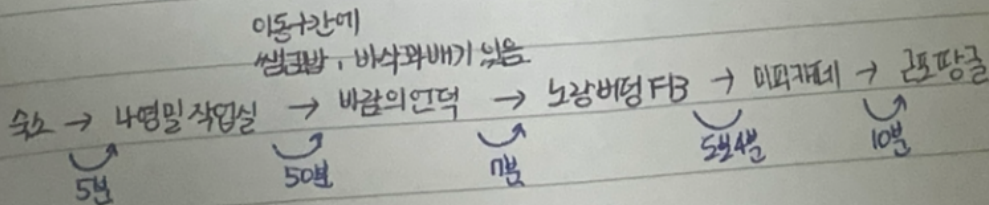 이동구간에
쌤김밥, 바삭꽈배기 있음
숙소 → 나영밀 작업실 → 바람의언덕 → 노랑버텅 FB → 미피카페 → 근포땅굴
5분 50분 7분 도보4분 10분